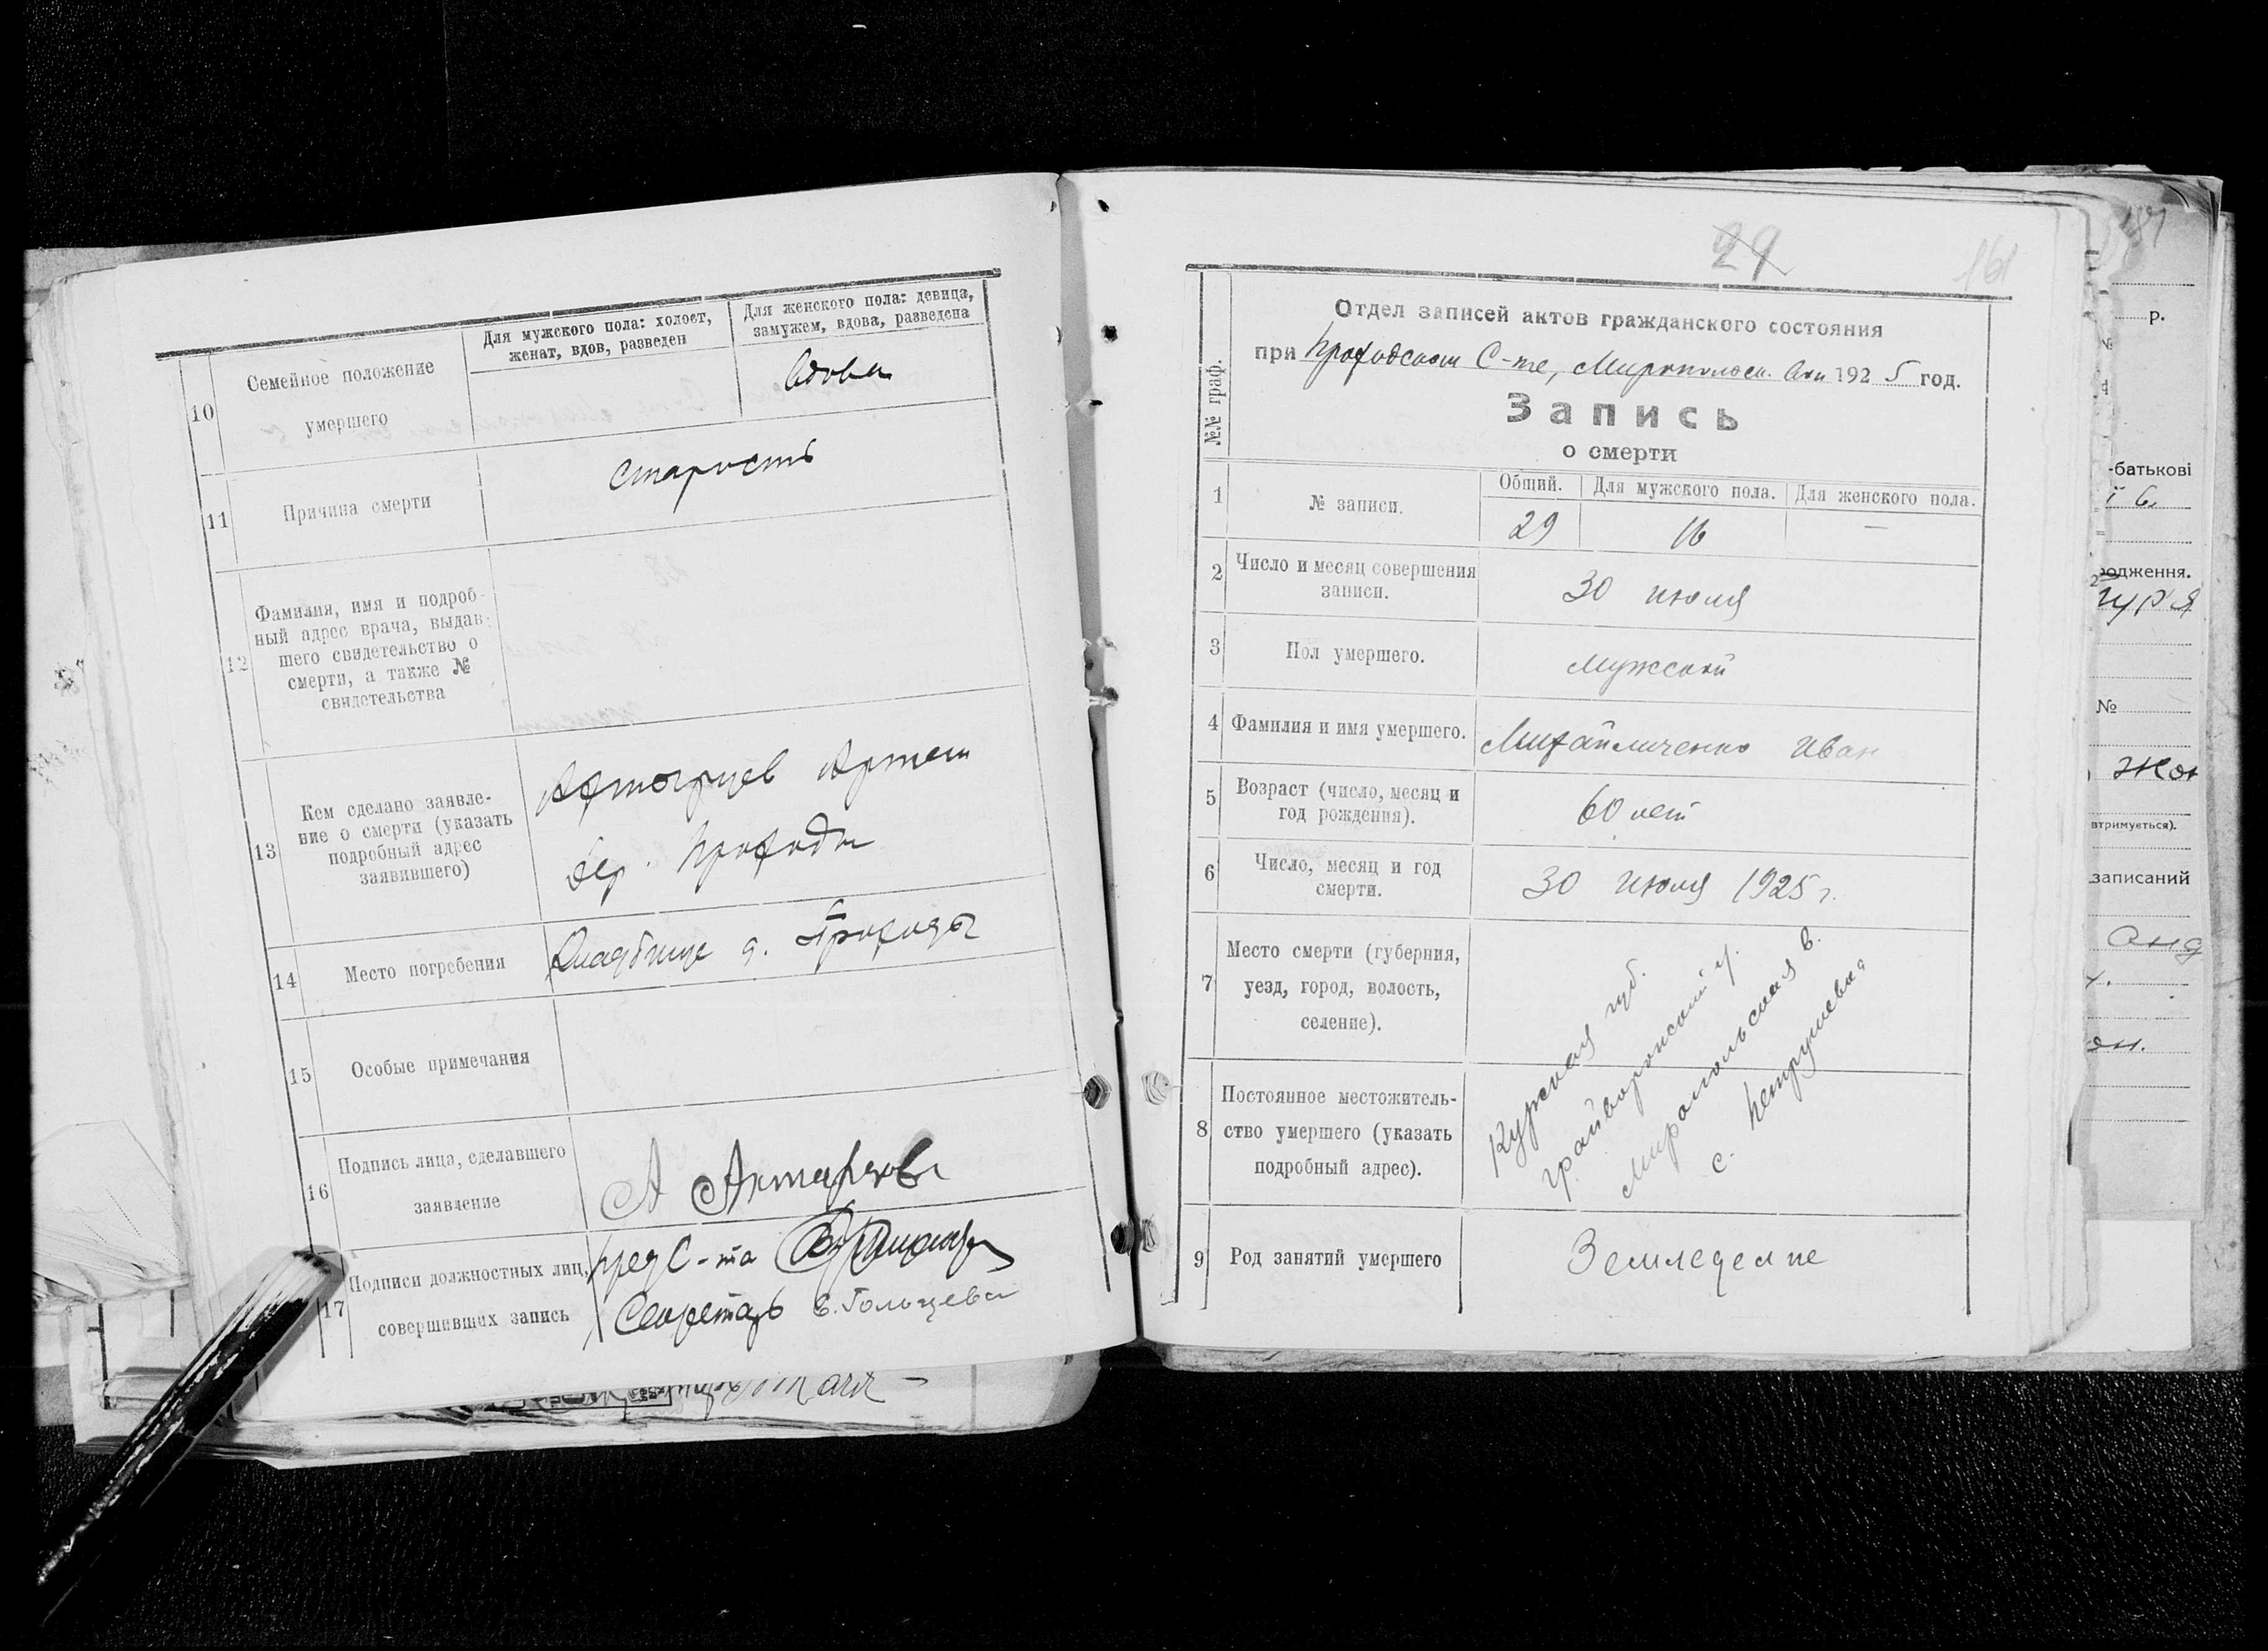 10
Семейное положение
умершего
Для мужского пола: холост,
женат, вдов, разведен
Для женского пола: девица,
замужем, вдова, разведена
Вдова
11
Причина смерти
Старость
12
Фамилия, имя и подроб-
ный адрес врача, выдав-
шего свидетельство о
смерти, а также №
свидетельства
13
Кем сделано заявле-
ние о смерти (указать
подробный адрес
заявившего)
Артем
дер. Проходы
14
Место погребения
Кладбище д. Проходы
15
Особые примечания
16
Подпись лица, сделавшего
заявление
А
17
Подписи должностных лиц,
совершивших запись
Пред С-та
Секретарь В. Гольцева
29
161
№№ граф.
Отдел записей актов гражданского состояния
при Проходском С-те, Миропольск. Вол 1925 год.
Запись
о смерти
1
№ записи.
Общий.
Для мужского пола.
Для женского пола.
29
16
—
2
Число и месяц совершения
записи.
30 июля
3
Пол умершего.
мужской
4
Фамилия и имя умершего.
Михайличенко Иван
5
Возраст (число, месяц и
год рождения).
60 лет
6
Число, месяц и год
смерти.
30 июля 1925 г.
7
Место смерти (губерния,
уезд, город, волость,
селение).
8
Постоянное местожитель-
ство умершего (указать
подробный адрес).
Курская губ.
Грайворонский у.
Миропольская в.
с. Петрушевка
9
Род занятий умершего
Земледелие
р.
№
-батькові
одження.
№
втримується).
записаний